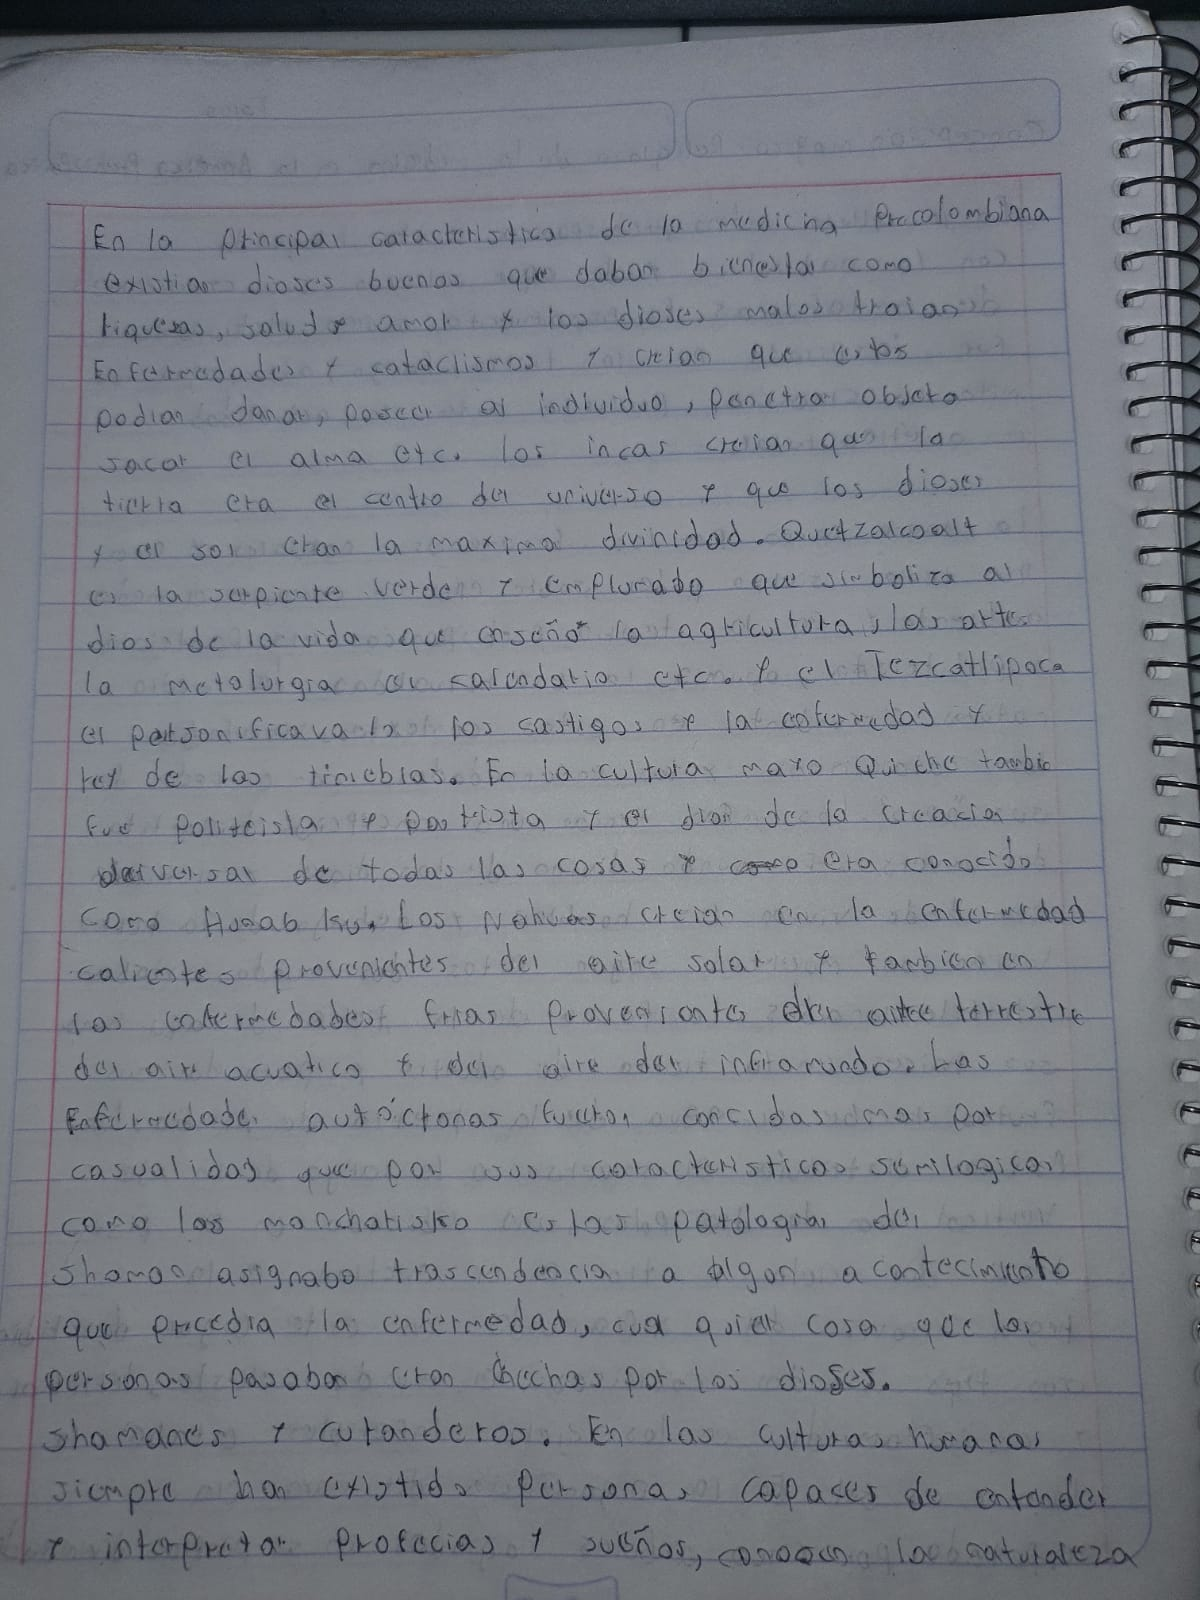 En la principal caracteristica de la medicina Precolombiana
existian dioses buenos que daban bienestar como
riquezas, salud y amor y los dioses malos traian
Enfermedades y cataclismos y creian que estos
podian danar, poseer al individuo, penetrar objeto
sacar el alma etc. los incas creian que la
tierra era el centro del universo y que los dioses
y el sol eran la maxima divinidad. Quetzalcoalt
es la serpiente verde y emplumado que simboliza al
dios de la vida que enseño la agricultura, las artes
la metalurgia el calendario etc. y el Tezcatlipoca
el personificava los castigos y la enfermedad y
rey de las tinieblas. En la cultura maya Quiche tambie
fue politeista y y el dios de la creacion
universal de todas las cosas y era conocido
como Hunab Ku. Los Nahuas creian en la enfermedad
calientes provenientes del aire solar y tambien en
las enfermedades frias provenientes del aire terrestre
del aire acuatico y del aire del inframundo. Las
Enfermedades autóctonas fueron concidas mas por
casualidad que por sus caracteristicas semilogicas
como los estas patologias del
shaman asignabo trascendencia a algon acontecimiento
que precedia la enfermedad, cual quier cosa que las
personas pasaban eran hechas por los dioses.
shamanes y curanderos. En las culturas humanas
siempre han existido personas capaces de entender
y interpretar profecias y sueños, conocen la naturaleza